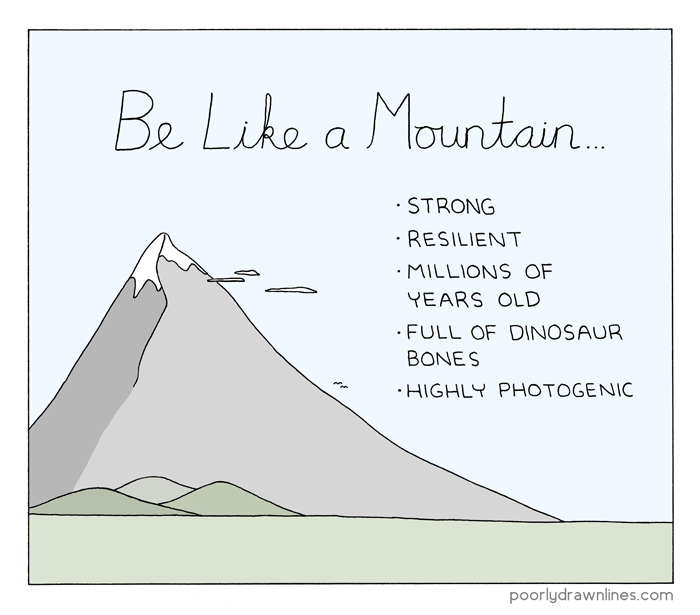 Be Like a Mountain...
· STRONG
· RESILIENT
· MILLIONS OF
YEARS OLD
· FULL OF DINOSAUR
BONES
· HIGHLY PHOTOGENIC
poorlydrawnlines.com